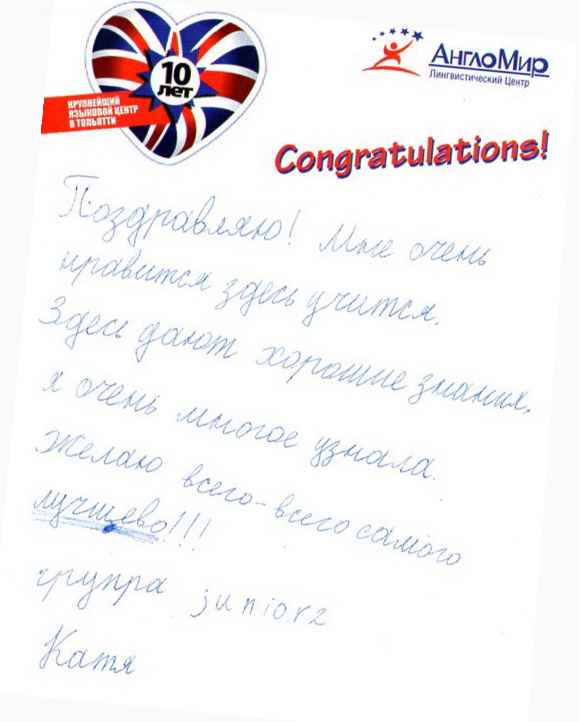 10
ЛЕТ
КРУПНЕЙШИЙ
ЯЗЫКОВОЙ ЦЕНТР
В ТОЛЬЯТТИ
АнглоМир
Лингвистический Центр
Congratulations!
Поздравляю! Мне очень
нравится здесь учится.
Здесь дают хорошие знания,
я очень многое узнала.
Желаю всего-всего самого
лучшево!!!
группа juniorz
Катя